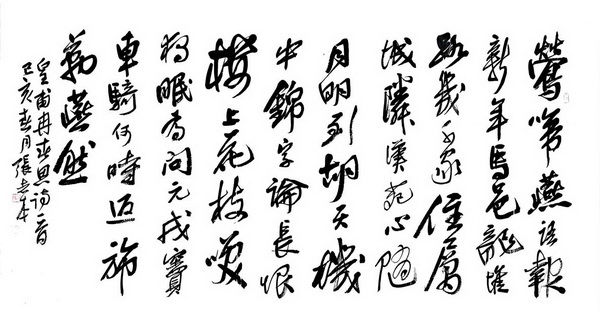 鶯啼燕語報
新年馬邑龍堆
路幾千家住層
城隣漢苑心隨
月明到胡天機
中錦字論長恨
樓上花枝笑
獨眠為問元戎竇
車騎何時返旆
勒燕然
皇甫冉春思詩一首
己亥春月張